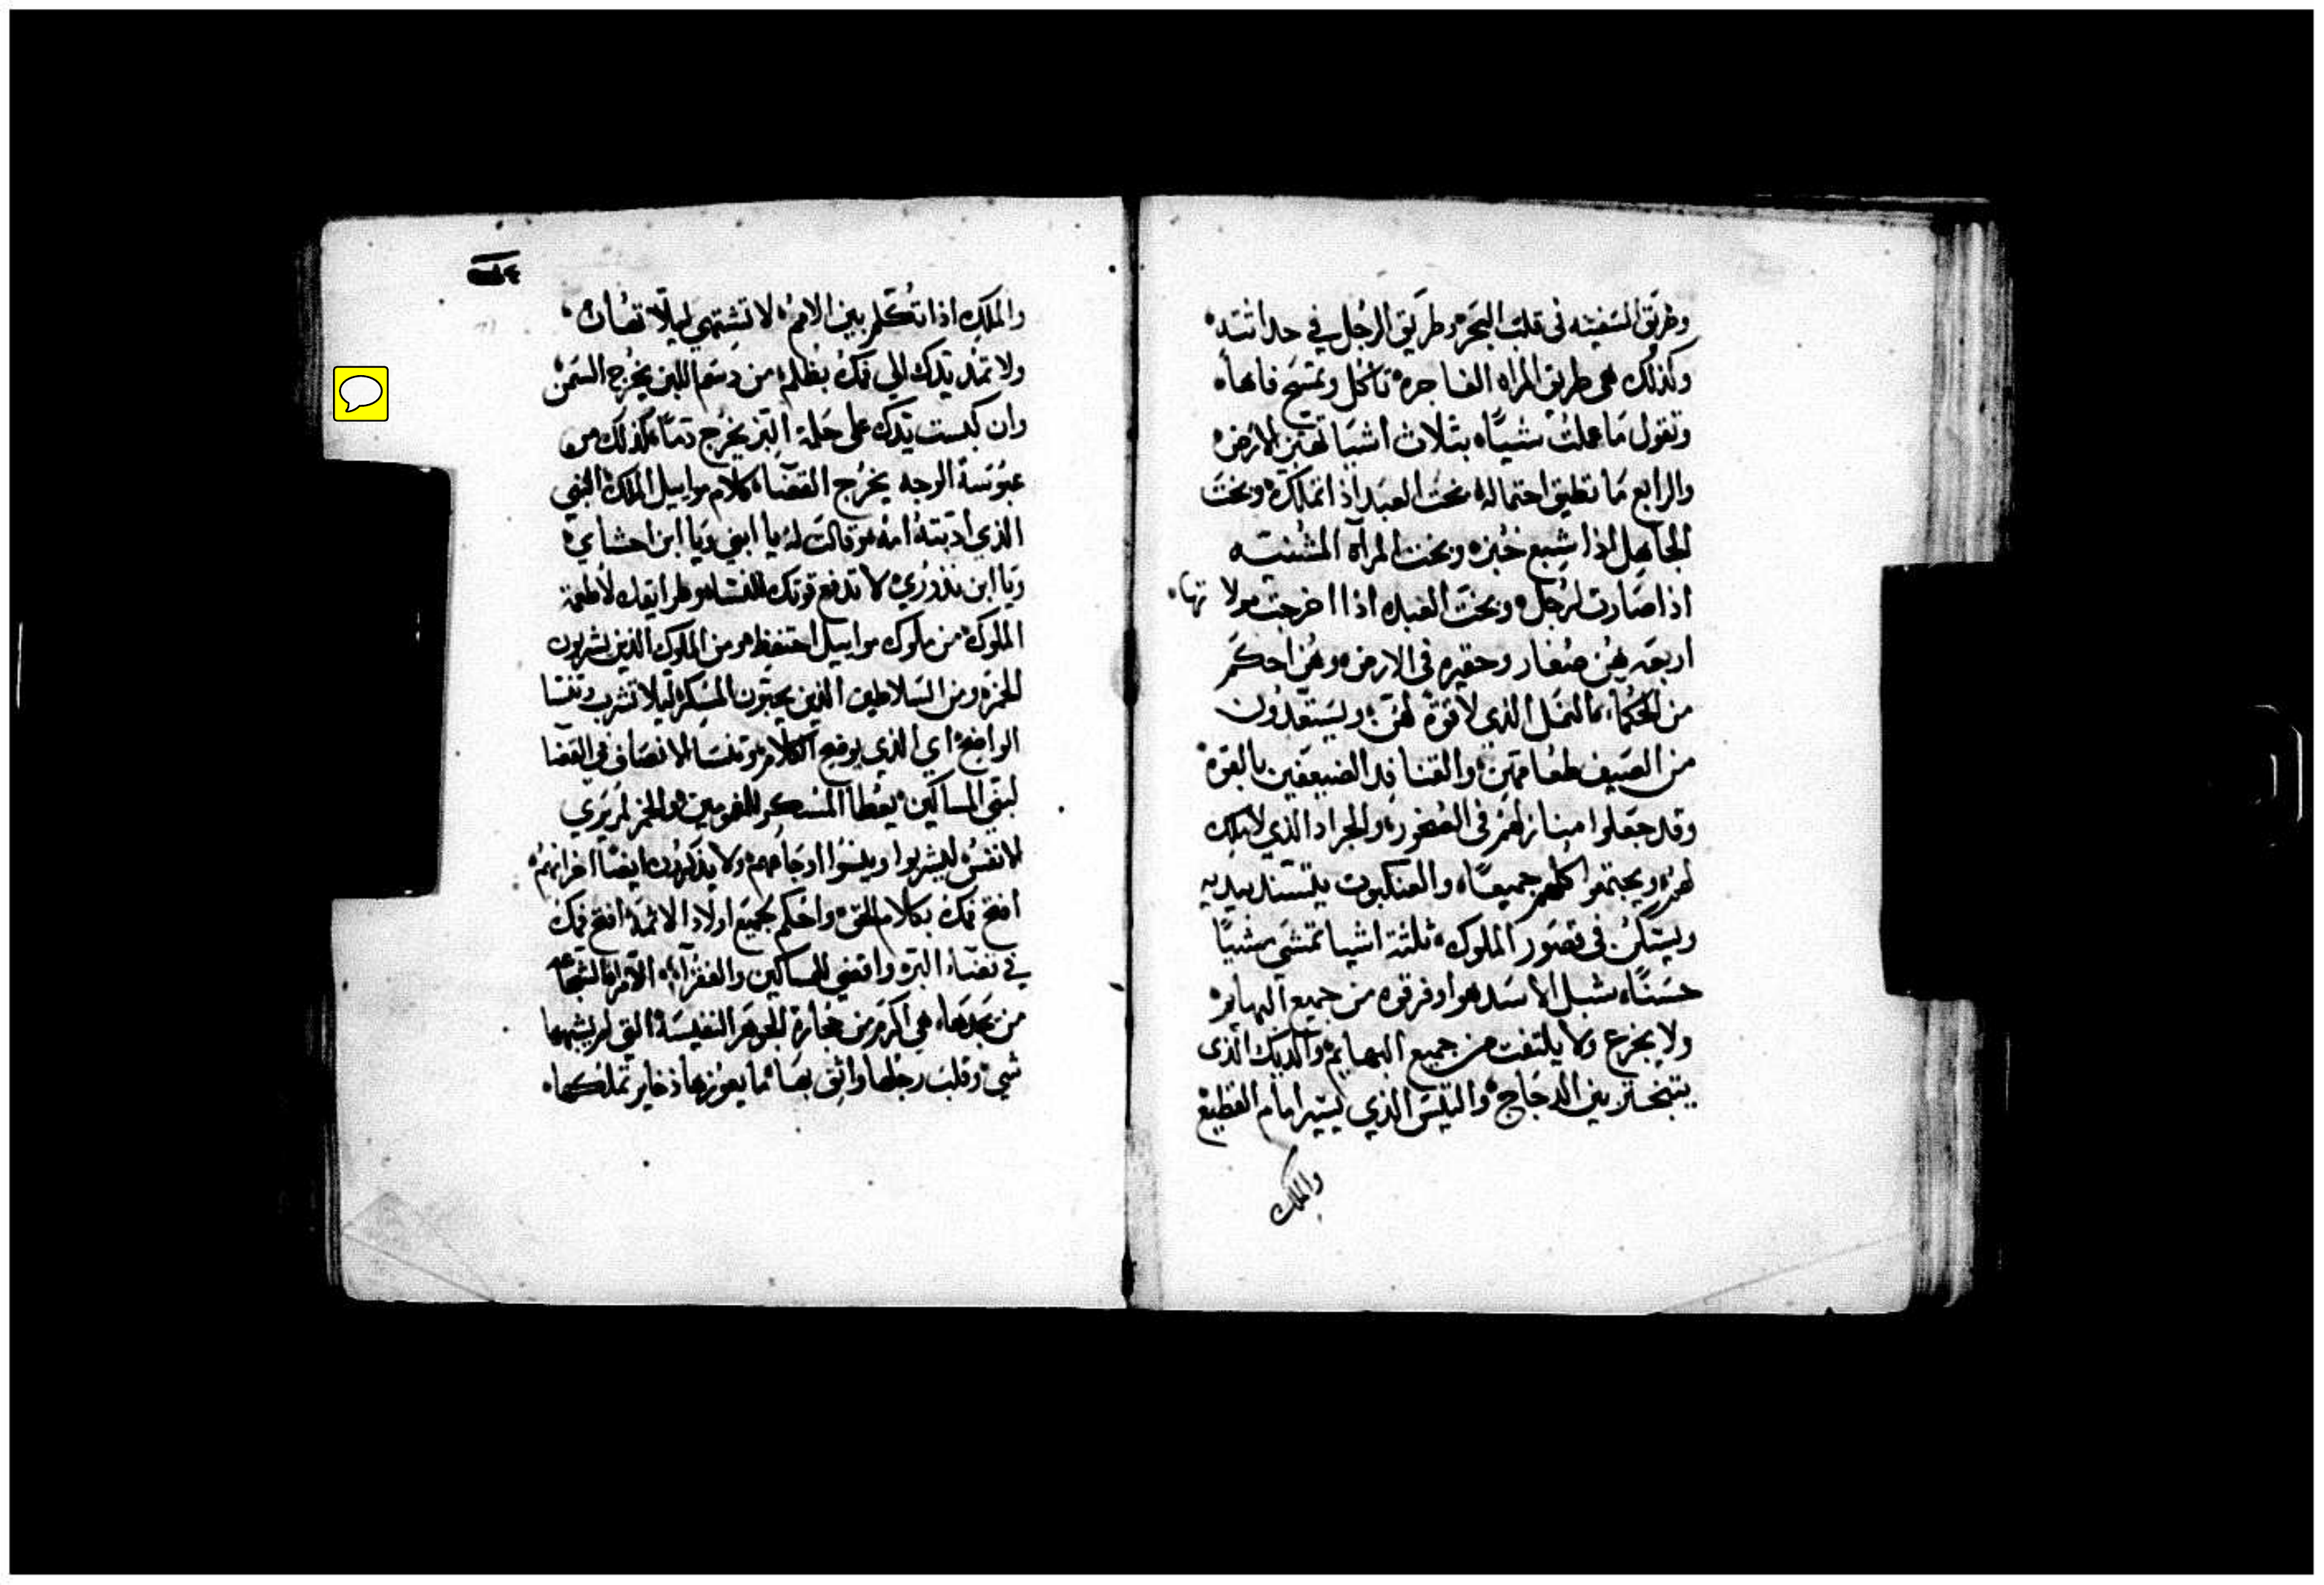 وطريق السفينه في قلب البحر وطريق الرجل في حداثته
وكذلك هي طريق المراه الفاجره تاكل وتمسح فاها
وتقول ما عملت شيًا بثلاث اشيا تهتز الارض
والرابع ما تطيق احتماله تحت العبد اذا تملك وتحت
الجاهل اذا شبع خبز وتحت المرآة المشنته
اذا صارت لرجل وتحت العبده اذا اخرجت مولا تها
اربعه هن صغار وحقيره في الارض وهن احكم
من الحكما النمل الذي لا قوة لهن ويستعدون
من الصيف طعامهن والقنا فد الضعيفين بالقوه
وقد جعلوا منازلهم في الصخور والجراد الذي لا ملك
لهم ويجتمعوا كلهم جميعًا والعنكبوت يتسند بيديه
ويستكن في قصور الملوك ثلثة اشيا تمشى مشيًا
حسنًا شبل الاسد هو اوفر قوه من جميع البهايم
ولا يجزع ولا يلتفت من جميع البهايم والديك الذى
يتبختر بين الدجاج والتيس الذي يسير امام القطيع
والملك
والملك اذا تكلم بين الامم لا تشتهي ليلا تهان
ولا تمد يدك الي فمك بظلم من دسم اللبن يخرج السمن
وان كبست يدك على حلمة البز يخرج دمًا كذلك من
عبوسة الوجه يخرج القضا كلام مواييل الملك النبي
الذي ادبته امه وقالت له يا ابني ويا ابن احشاي
ويا ابن نذوري لا تدفع قوتك للنسا وطرايقك لاطعمة
الملوك من ملوك مواييل احتفظ ومن الملوك الذين يشربون
الخمر ومن السلاطين الذين يحبون المسكر ليلا تشرب وتنسا
الواضح اي الذي يوضح الكلام وتنسا الانصاف في القضا
لبني المساكين يعطا المسكر للمغمومين والخمر لمريري
الانفس ليشربوا وينسوا اوجاعهم ولا يذكرون ايضا احزانهم
افتح فمك بكلام الحق واحكم لجميع اولاد الائمة افتح فمك
في قضاء البر واقضي للمساكين والفقرآء الامراة الشجاعه
من يجدها هي اكرم من حجارة الجوهر النفيسة التي لم يشبهها
شي وقلب رجلها واثق بها ما يعوزها ذخاير تملكها